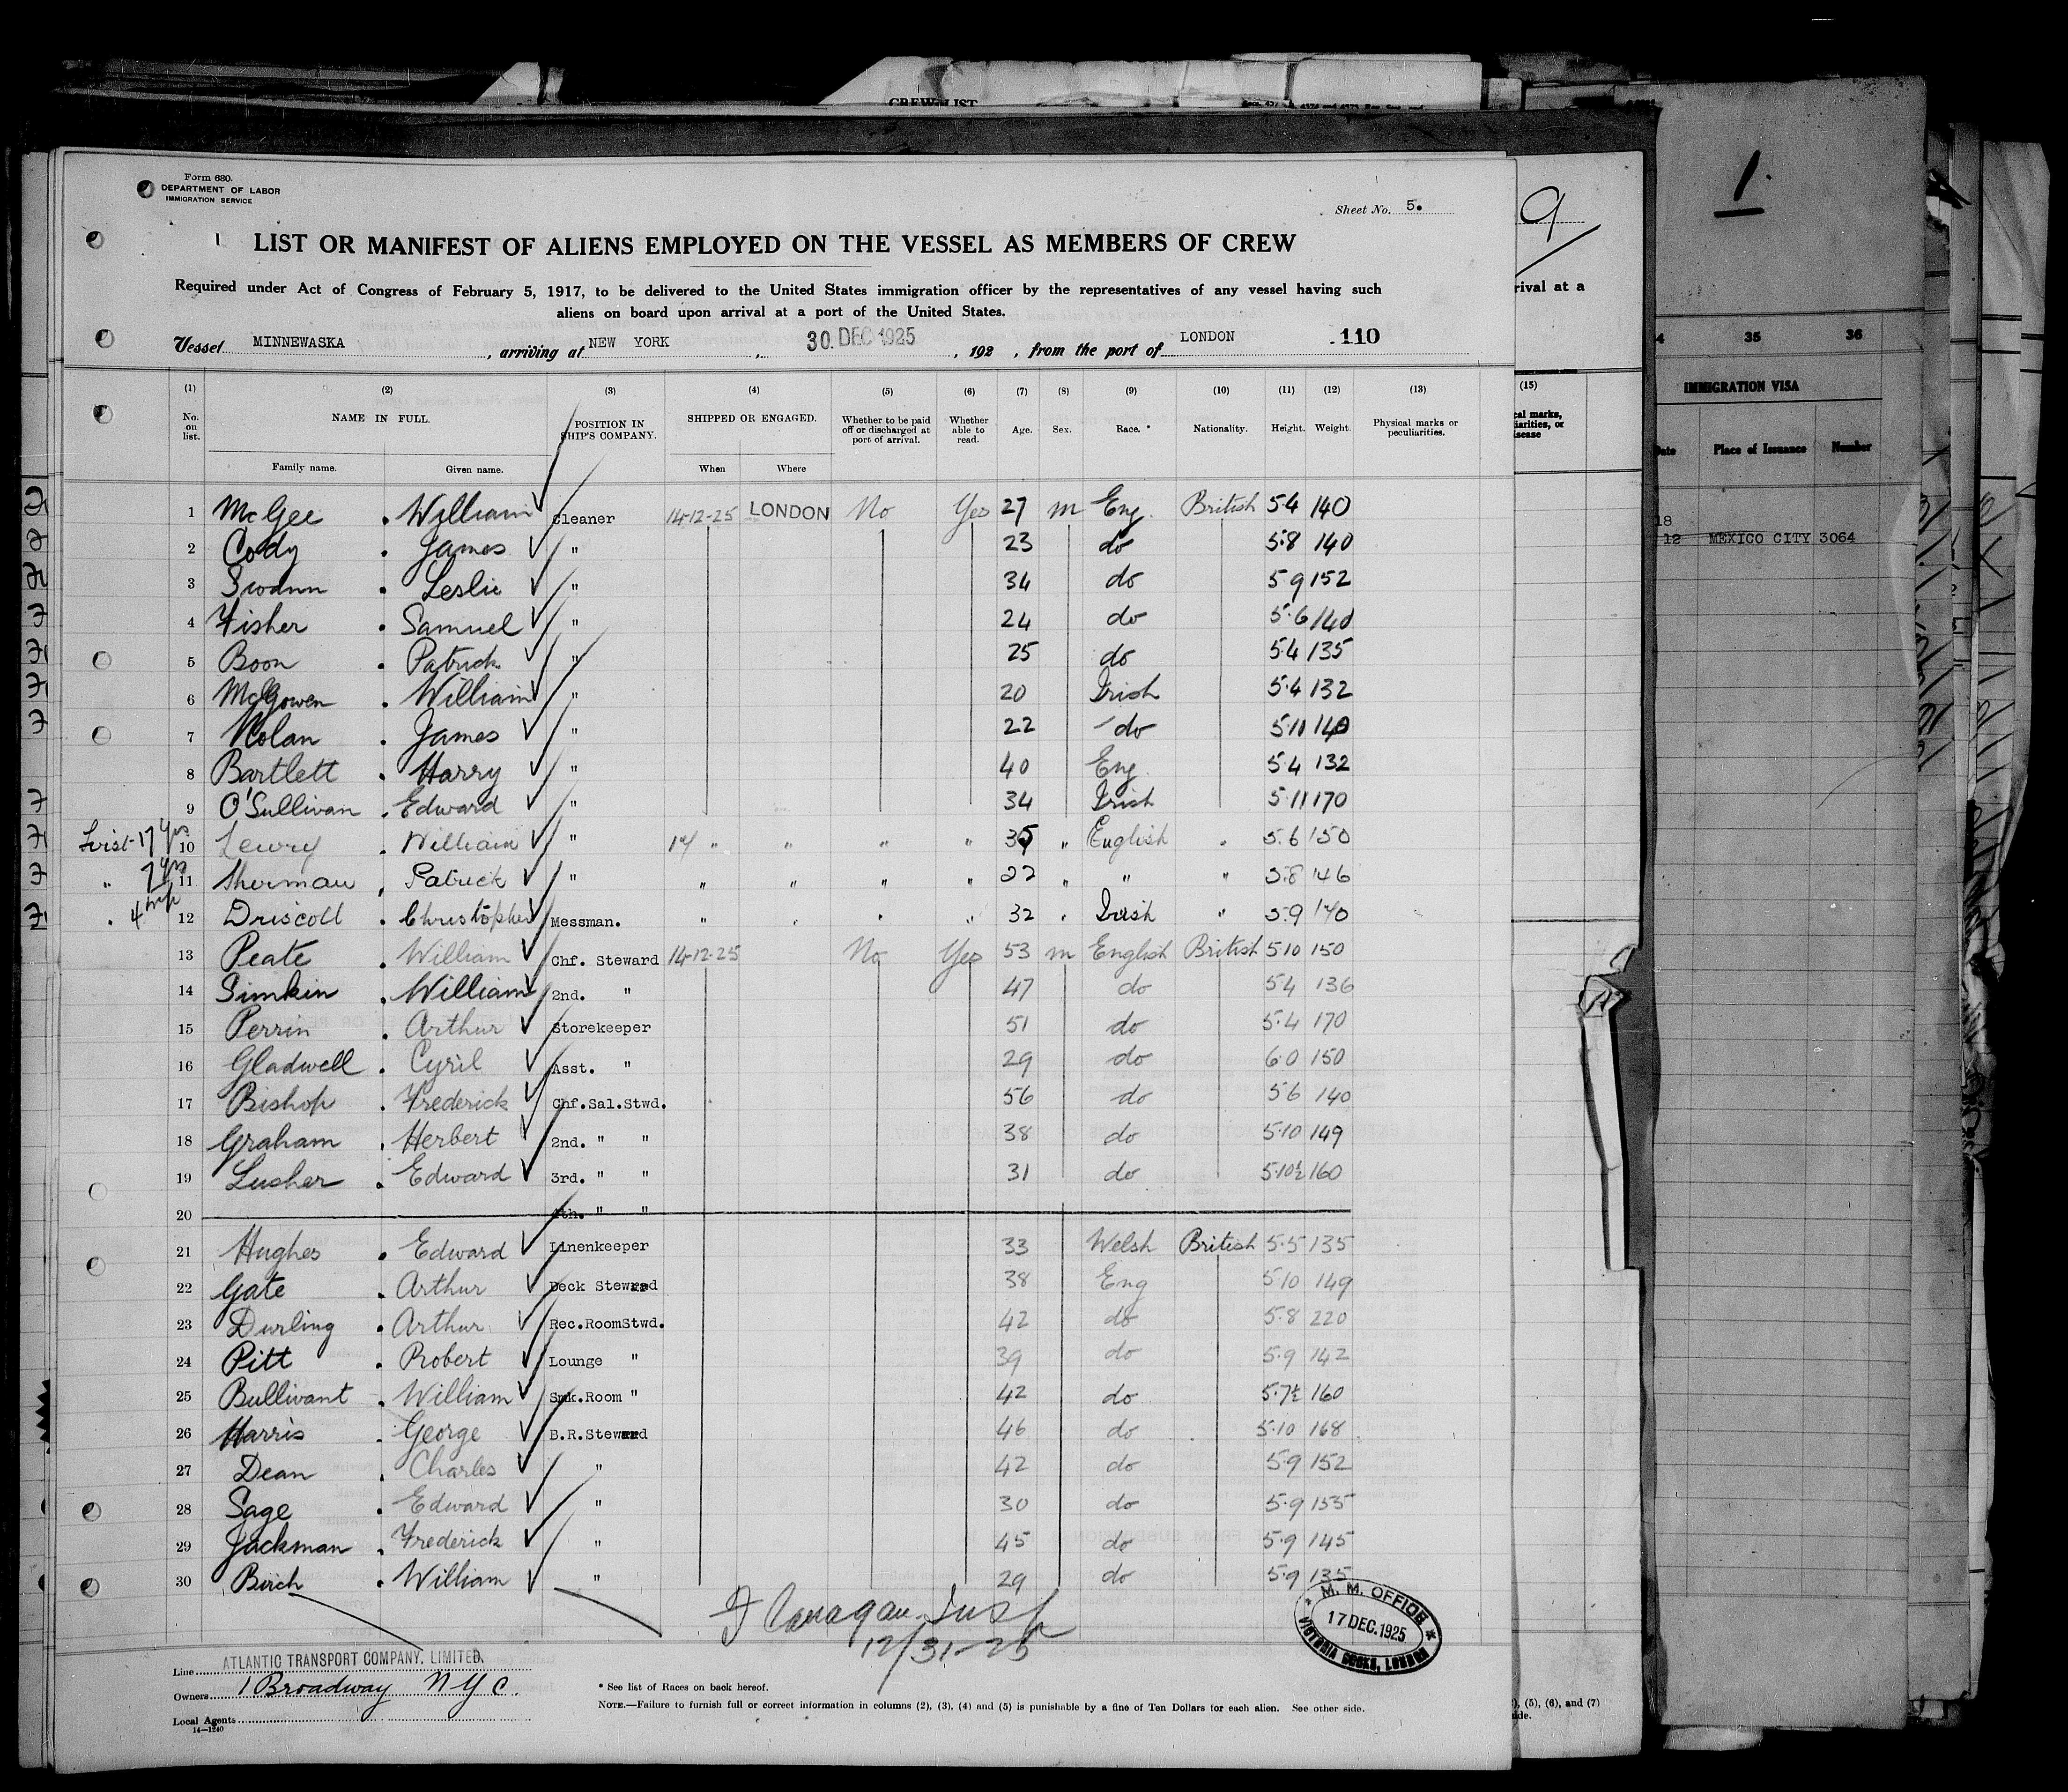 CREW LIST
1
9
Form 680.
DEPARTMENT OF LABOR
IMMIGRATION SERVICE
Sheet No. 5.
LIST OR MANIFEST OF ALIENS EMPLOYED ON THE VESSEL AS MEMBERS OF CREW
Required under Act of Congress of February 5, 1917, to be delivered to the United States immigration officer by the representatives of any vessel having such
aliens on board upon arrival at a port of the United States.
rival at a
Vessel MINNEWASKA, arriving at NEW YORK, 30 DEC 1925, 192 , from the port of LONDON 110
(1) (2) (3) (4) (5) (6) (7) (8) (9) (10) (11) (12) (13) (15)
35 36
IMMIGRATION VISA
Place of Issuance Number
No. on list. NAME IN FULL. POSITION IN SHIP'S COMPANY. SHIPPED OR ENGAGED. Whether to be paid off or discharged at port of arrival. Whether able to read. Age. Sex. Race. * Nationality. Height. Weight. Physical marks or peculiarities.
Family name. Given name. When Where
1 McGee William Cleaner 14-12-25 LONDON No Yes 27 m Eng. British 5.4 140
2 Cody James " 23 do 5.8 140
3 Swann Leslie " 34 do 5.9 152
4 Fisher Samuel " 24 do 5.6 140
5 Boon Patrick " 25 do 5.4 135
6 McGowen William " 20 Irish 5.4 132
7 Nolan James " 22 do 5.11 140
8 Bartlett Harry " 40 Eng 5.4 132
9 O'Sullivan Edward " 34 Irish 5.11 170
17 yrs 10 William " 14 " " " " 35 " English " 5.6 150
" 7 yrs 11 Sherman Patrick " " " " " " " " 5.8 146
" 4 12 Driscoll Christopher Messman. " " " " 32 " Irish " 5.9 140
13 Peate William Chf. Steward 14-12-25 No Yes 53 m English British 5.10 150
14 Simkin William 2nd. " 47 do 5.4 136
15 Perrin Arthur Storekeeper 51 do 5.4 170
16 Gladwell Cyril Asst. " 29 do 6.0 150
17 Bishop Frederick Chf.Sal.Stwd. 56 do 5.6 140
18 Graham Herbert 2nd. " " 38 do 5.10 149
19 Lusher Edward 3rd. " " 31 do 5.10½ 160
20 4th. " "
21 Hughes Edward Linenkeeper 33 Welsh British 5.5 135
22 Gate Arthur Deck Steward 38 Eng 5.10 149
23 Durling Arthur Rec.RoomStwd. 42 do 5.8 220
24 Pitt Robert Lounge " 39 do 5.9 142
25 Bullivant William Smk.Room " 42 do 5.7½ 160
26 Harris George B.R.Steward 46 do 5.10 168
27 Dean Charles " 42 do 5.9 152
28 Sage Edward " 30 do 5.9 155
29 Jackman Frederick " 45 do 5.9 145
30 Birch William " 29 do 5.9 135
18
12 MEXICO CITY 3064
12/31-25
M. M. OFFICE
17 DEC. 1925
VICTORIA DOCKS, LONDON
Line ATLANTIC TRANSPORT COMPANY, LIMITED.
Owners 1 Broadway N Y C.
Local Agents
14—1240
* See list of Races on back hereof.
NOTE.—Failure to furnish full or correct information in columns (2), (3), (4) and (5) is punishable by a fine of Ten Dollars for each alien. See other side.
(5), (6), and (7)